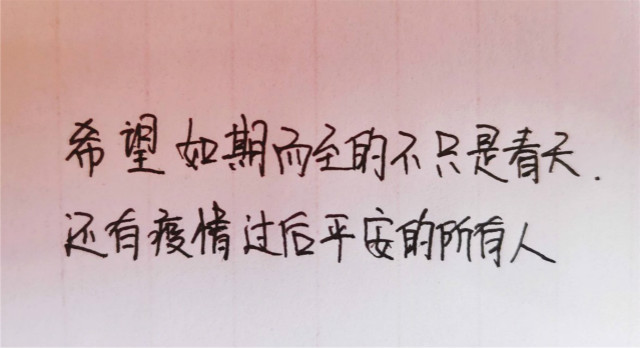 希望如期而至的不只是春天.
还有疫情过后平安的所有人